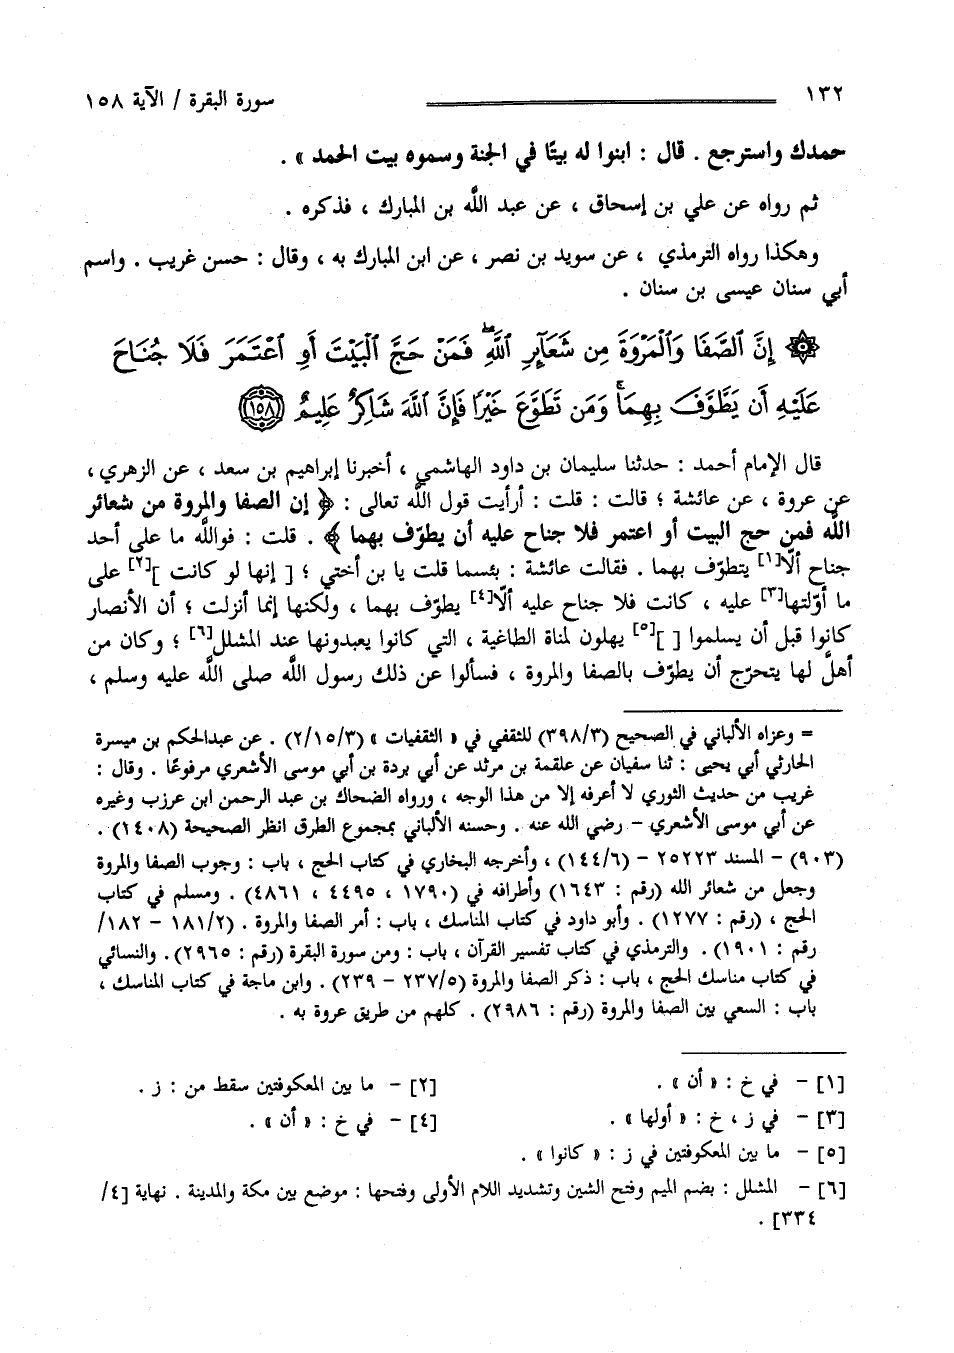 ١٣٢ سورة البقرة / الآية ١٥٨
حمدك واسترجع . قال : ابنوا له بيتًا في الجنة وسموه بيت الحمد » .
ثم رواه عن علي بن إسحاق ، عن عبد اللَّه بن المبارك ، فذكره .
وهكذا رواه الترمذي ، عن سويد بن نصر ، عن ابن المبارك به ، وقال : حسن غريب . واسم
أبي سنان عيسى بن سنان .
۞ إِنَّ ٱلصَّفَا وَٱلْمَرْوَةَ مِن شَعَآئِرِ ٱللَّهِ ۖ فَمَنْ حَجَّ ٱلْبَيْتَ أَوِ ٱعْتَمَرَ فَلَا جُنَاحَ
عَلَيْهِ أَن يَطَّوَّفَ بِهِمَا ۚ وَمَن تَطَوَّعَ خَيْرًا فَإِنَّ ٱللَّهَ شَاكِرٌ عَلِيمٌ ﴿١٥٨﴾
قال الإمام أحمد : حدثنا سليمان بن داود الهاشمي ، أخبرنا إبراهيم بن سعد ، عن الزهري ،
عن عروة ، عن عائشة ؛ قالت : قلت : أرأيت قول اللَّه تعالى : ﴿ إن الصفا والمروة من شعائر
اللَّه فمن حج البيت أو اعتمر فلا جناح عليه أن يطوّف بهما ﴾ . قلت : فواللَّه ما على أحد
جناح ألَّا[١] يتطوّف بهما . فقالت عائشة : بئسما قلت يا بن أختي ؛ [ إنها لو كانت ][٢] على
ما أوّلتها[٣] عليه ، كانت فلا جناح عليه ألّا[٤] يطوّف بهما ، ولكنها إنما أنزلت ؛ أن الأنصار
كانوا قبل أن يسلموا [ ][٥] يهلون لمناة الطاغية ، التي كانوا يعبدونها عند المشلل[٦] ؛ وكان من
أهلَّ لها يتحرّج أن يطوّف بالصفا والمروة ، فسألوا عن ذلك رسول اللَّه صلى اللَّه عليه وسلم ،
= وعزاه الألباني في الصحيح (٣٩٨/٣) للثقفي في « الثقفيات » (٢/١٥/٣) . عن عبدالحكم بن ميسرة
الحارثي أبي يحيى : ثنا سفيان عن علقمة بن مرثد عن أبي بردة بن أبي موسى الأشعري مرفوعًا . وقال :
غريب من حديث الثوري لا أعرفه إلا من هذا الوجه ، ورواه الضحاك بن عبد الرحمن ابن عرزب وغيره
عن أبي موسى الأشعري - رضي الله عنه . وحسنه الألباني بمجموع الطرق انظر الصحيحة (١٤٠٨) .
(٩٠٣) - المسند ٢٥٢٢٣ - (١٤٤/٦) ، وأخرجه البخاري في كتاب الحج ، باب : وجوب الصفا والمروة
وجعل من شعائر الله (رقم : ١٦٤٣) وأطرافه في (١٧٩٠ ، ٤٤٩٥ ، ٤٨٦١) . ومسلم في كتاب
الحج ، (رقم : ١٢٧٧) . وأبو داود في كتاب المناسك ، باب : أمر الصفا والمروة . (١٨١/٢ - ١٨٢/
رقم : ١٩٠١) . والترمذي في كتاب تفسير القرآن ، باب : ومن سورة البقرة (رقم : ٢٩٦٥) . والنسائي
في كتاب مناسك الحج ، باب : ذكر الصفا والمروة (٢٣٧/٥ - ٢٣٩) . وابن ماجة في كتاب المناسك ،
باب : السعي بين الصفا والمروة (رقم : ٢٩٨٦) . كلهم من طريق عروة به .
[١] - في خ : « أن » . [٢] - ما بين المعكوفتين سقط من : ز .
[٣] - في ز ، خ : « أولها » . [٤] - في خ : « أن » .
[٥] - ما بين المعكوفتين في ز : « كانوا » .
[٦] - المشلل : بضم الميم وفتح الشين وتشديد اللام الأولى وفتحها : موضع بين مكة والمدينة . نهاية [٤/
٣٣٤] .